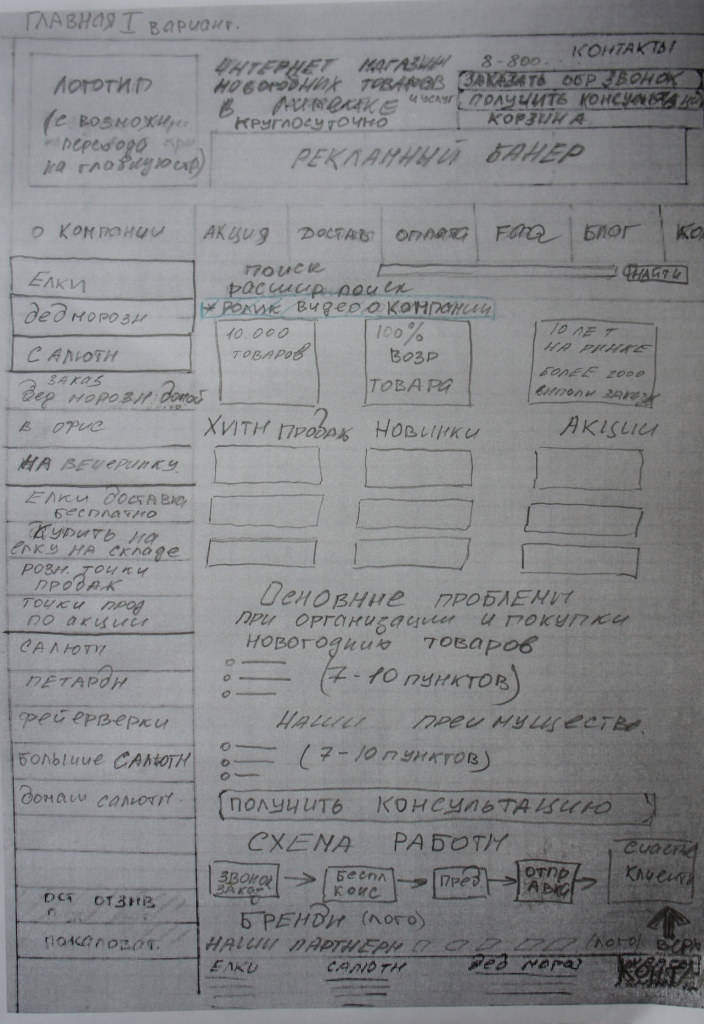 ГЛАВНАЯ I вариант.
КОНТАКТЫ
ЛОГОТИП
(с возможн
перехода
на главную стр)
ИНТЕРНЕТ МАГАЗИН
НОВОГОДНИХ ТОВАРОВ
и услуг
В
КРУГЛОСУТОЧНО
8-800...
ЗАКАЗАТЬ ОБР ЗВОНОК
ПОЛУЧИТЬ КОНСУЛЬТАЦИЮ
КОРЗИНА
РЕКЛАМНЫЙ БАНЕР
О КОМПАНИИ
АКЦИЯ
ДОСТАВ
ОПЛАТА
FAQ
БЛОГ
КО
ПОИСК
НАЙТИ
расшир поиск
* РОЛИК ВИДЕО О КОМПАНИИ
ЕЛКИ
ДЕД МОРОЗЫ
САЛЮТЫ
ЗАКАЗ
ДЕД МОРОЗЫ ДОМОЙ
В ОФИС
НА ВЕЧЕРИНКУ
ЕЛКИ ДОСТАВКА
БЕСПЛАТНО
КУПИТЬ НА
ЕЛКУ НА СКЛАДЕ
РОЗН. ТОЧКИ
ПРОДАЖ
ТОЧКИ ПРОД
ПО АКЦИИ
САЛЮТЫ
ПЕТАРДЫ
ФЕЙЕРВЕРКИ
БОЛЬШИЕ САЛЮТЫ
ДОМАШ САЛЮТЫ.
ОСТ ОТЗЫВ
ПОЖАЛОВАТ.
10.000
ТОВАРОВ
100%
ВОЗВР
ТОВАРА
10 ЛЕТ
НА РЫНКЕ
БОЛЕЕ 2000
ВЫПОЛН ЗАКАЗ
ХИТЫ ПРОДАЖ
НОВИНКИ
АКЦИИ
ОСНОВНЫЕ ПРОБЛЕМЫ
ПРИ ОРГАНИЗАЦИИ И ПОКУПКИ
НОВОГОДНИЮ ТОВАРОВ
(7-10 ПУНКТОВ)
НАШИ ПРЕИМУЩЕСТВ.
(7-10 ПУНКТОВ)
ПОЛУЧИТЬ КОНСУЛЬТАЦИЮ
СХЕМА РАБОТЫ
ЗВОНОК
ЗАКАЗ
БЕСПЛ
КОНС
ПРЕД
ОТПР
АВКА
СЧАСТЛ
КЛИЕНТЫ
БРЕНДЫ (лого)
НАШИ ПАРТНЕРЫ (лого)
ВЕРХ
ЕЛКИ
САЛЮТЫ
ДЕД МОРОЗ
КОНТ